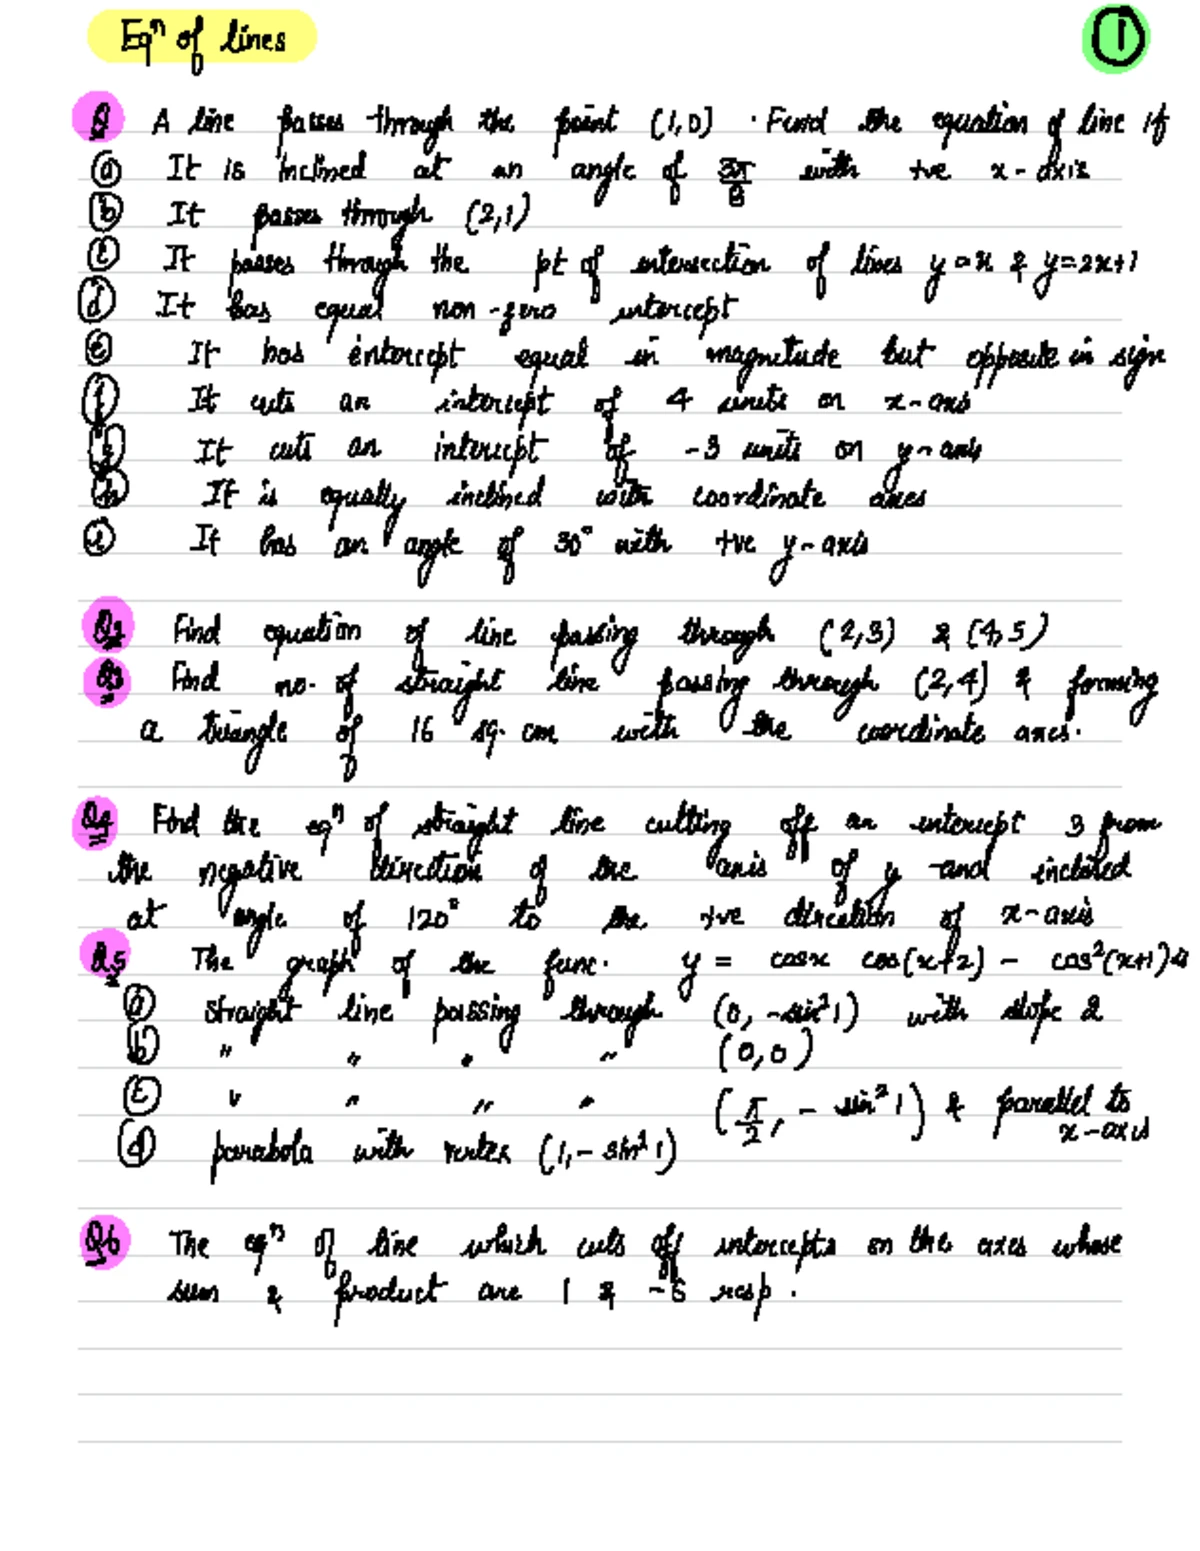 Eqⁿ of lines
①
Q A line passes through the point (1,0). Find the equation of line if
ⓐ It is inclined at an angle of 3π/8 with +ve x-axis
ⓑ It passes through (2,1)
ⓒ It passes through the pt of intersection of lines y=x & y=2x+1
ⓓ It has equal non-zero intercept
ⓔ It has intercept equal in magnitude but opposite in sign
ⓕ It cuts an intercept of 4 units on x-axis
ⓖ It cuts an intercept of -3 units on y-axis
ⓗ It is equally inclined with coordinate axes
ⓘ It has an angle of 30° with +ve y-axis
Q2 Find equation of line passing through (2,3) & (4,5)
Q3 Find no. of straight line passing through (2,4) & forming
a triangle of 16 sq. cm with the coordinate axes.
Q4 Find the eqⁿ of straight line cutting off an intercept 3 from
the negative direction of the axis of y and inclined
at angle of 120° to the +ve direction of x-axis
Q5 The graph of the func. y = cosx cos(x+2) - cos²(x+1) is
ⓐ straight line passing through (0, -sin²1) with slope 2
ⓑ " " " " (0,0)
ⓒ " " " " (π/2, -sin²1) & parallel to
x-axis
ⓓ parabola with vertex (1,-sin²1)
Q6 The eqⁿ of line which cuts off intercepts on the axes whose
sum & product are 1 & -6 resp.